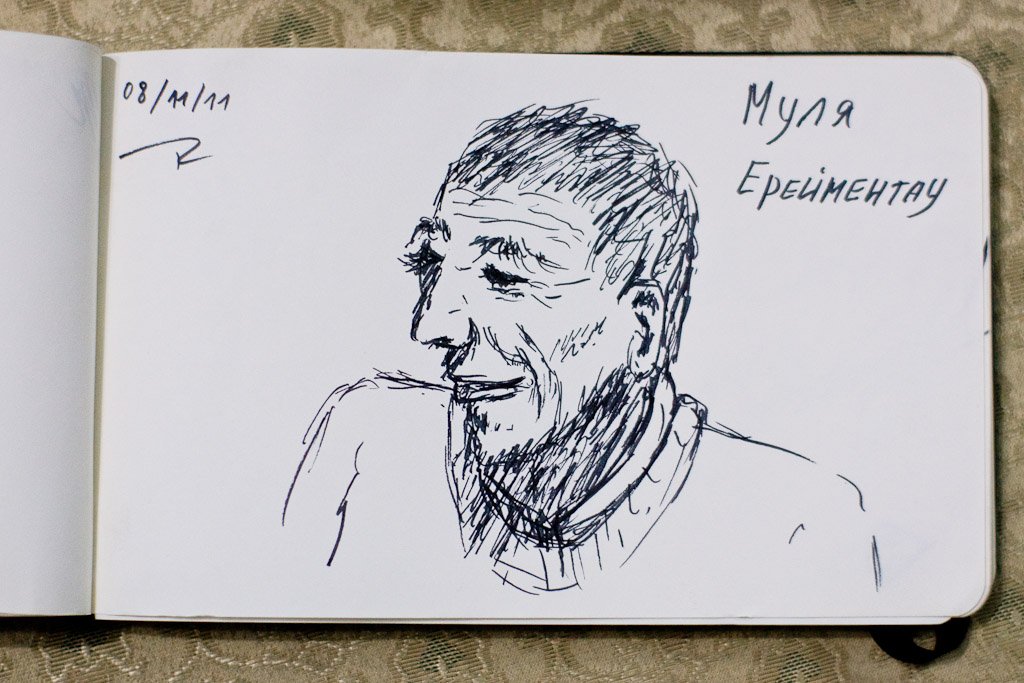 08/11/11
Муля
Ерейментау